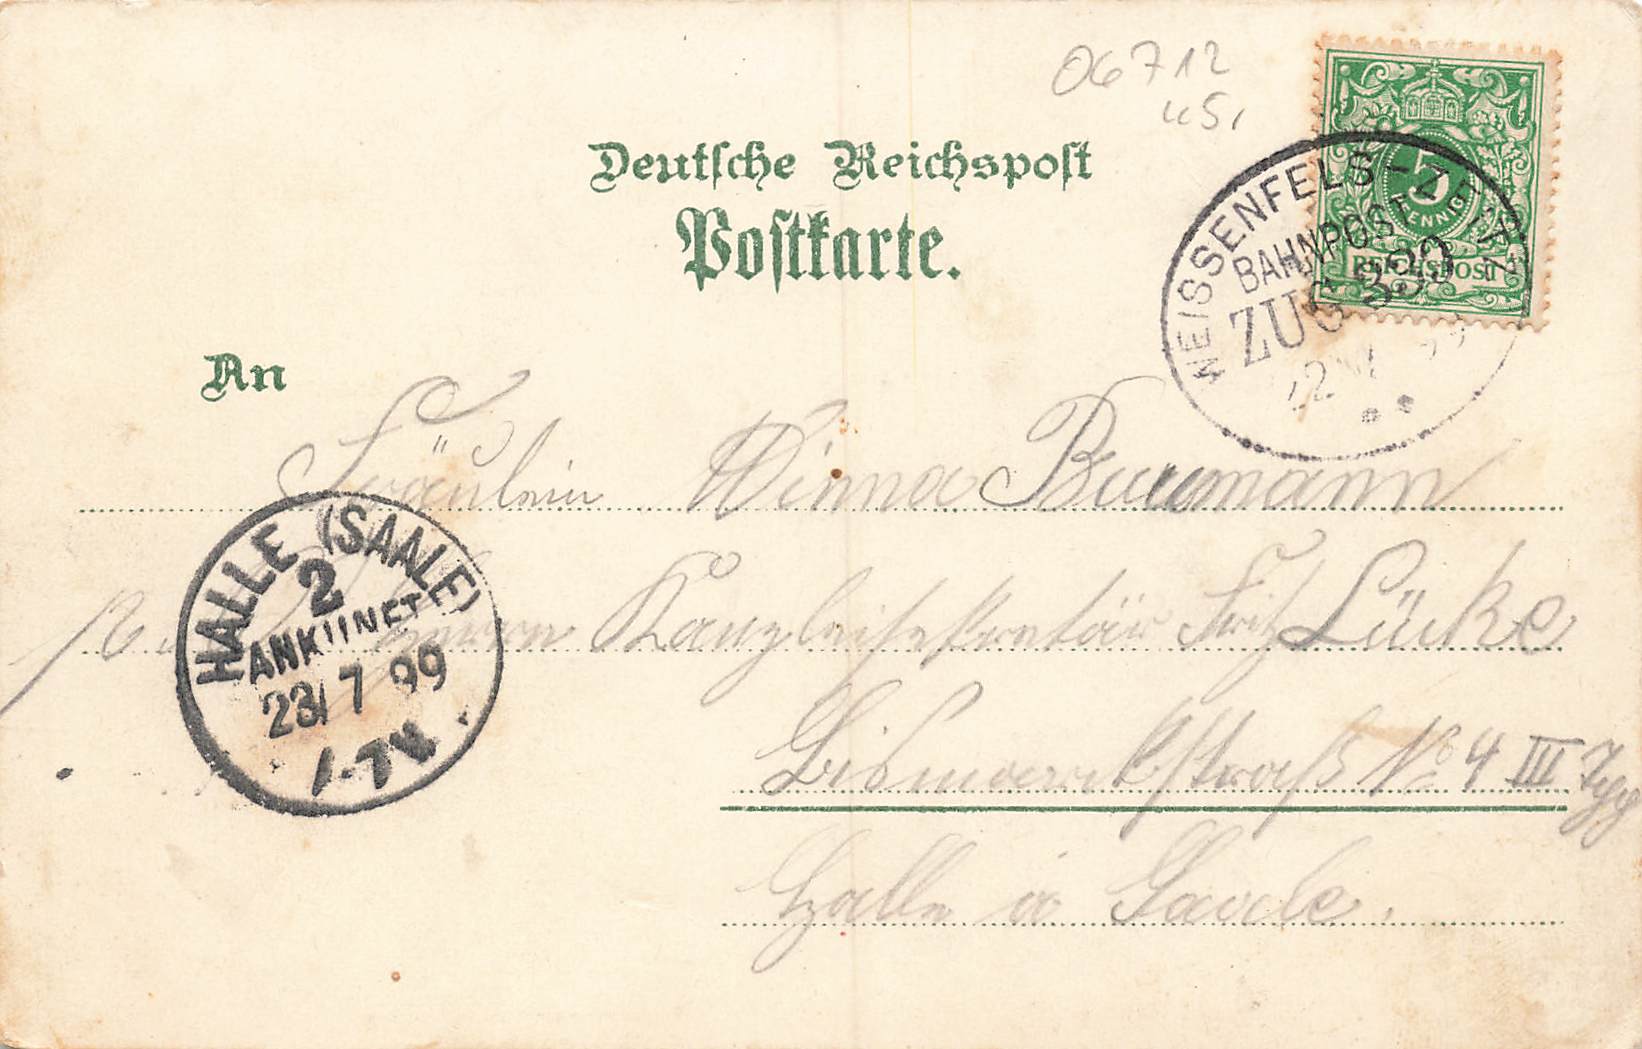 06712
usi
Deutsche Reichspost
Postkarte.
5
PFENNIG
REICHSPOST
WEISSENFELS-ZEITZ
BAHNPOST
ZUG 333
An
Fräulein Minna Baumann
Herrn Kanzleisekretär Fritz Lücke
Bismarckstraß No 4 III
Halle a Saale.
HALLE (SAALE)
2
ANKUNFT
23/7 99
1-7V.